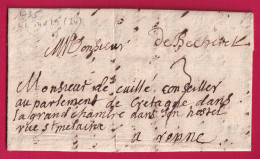 Monsieur De Becherel
Monsieur de cuillé conseiller
au parlement de Bretagne dans
la grand chambre dans son hostel
rue st melaine
a renne